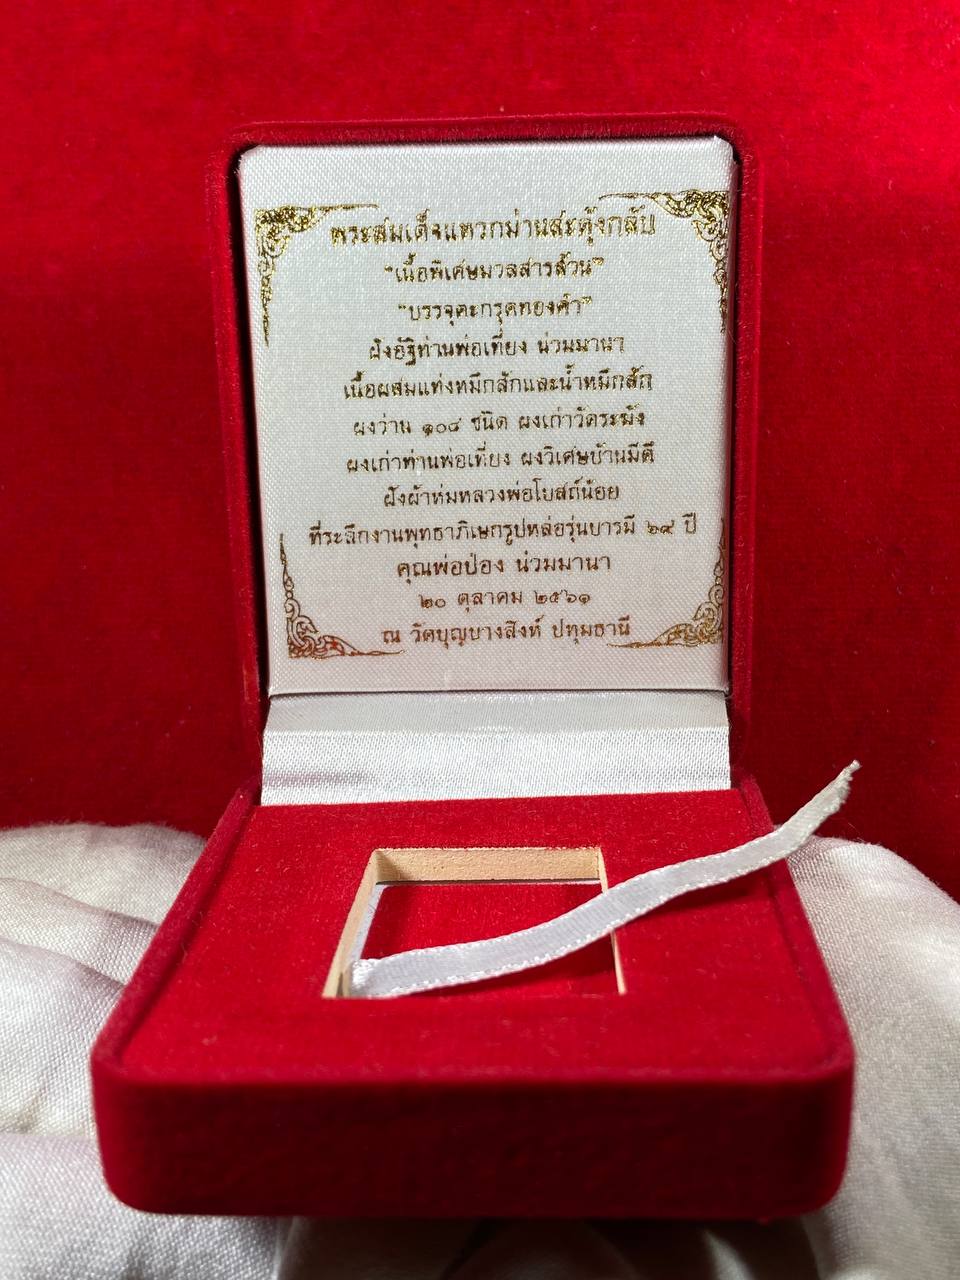 พระสมเด็จแหวกม่านสะดุ้งกลับ
"เนื้อพิเศษมวลสารล้วน"
"บรรจุตะกรุดทองคำ"
ฝังอัฐิท่านพ่อเที่ยง น่วมมานา
เนื้อผสมแท่งหมึกสักและน้ำหมึกสัก
ผงว่าน ๑๐๘ ชนิด ผงเก่าวัดระฆัง
ผงเก่าท่านพ่อเที่ยง ผงวิเศษบ้านมีดี
ฝังผ้าห่มหลวงพ่อโบสถ์น้อย
ที่ระลึกงานพุทธาภิเษกรูปหล่อรุ่นบารมี ๖๙ ปี
คุณพ่อป๋อง น่วมมานา
๒๐ ตุลาคม ๒๕๖๑
ณ วัดบุญบางสิงห์ ปทุมธานี